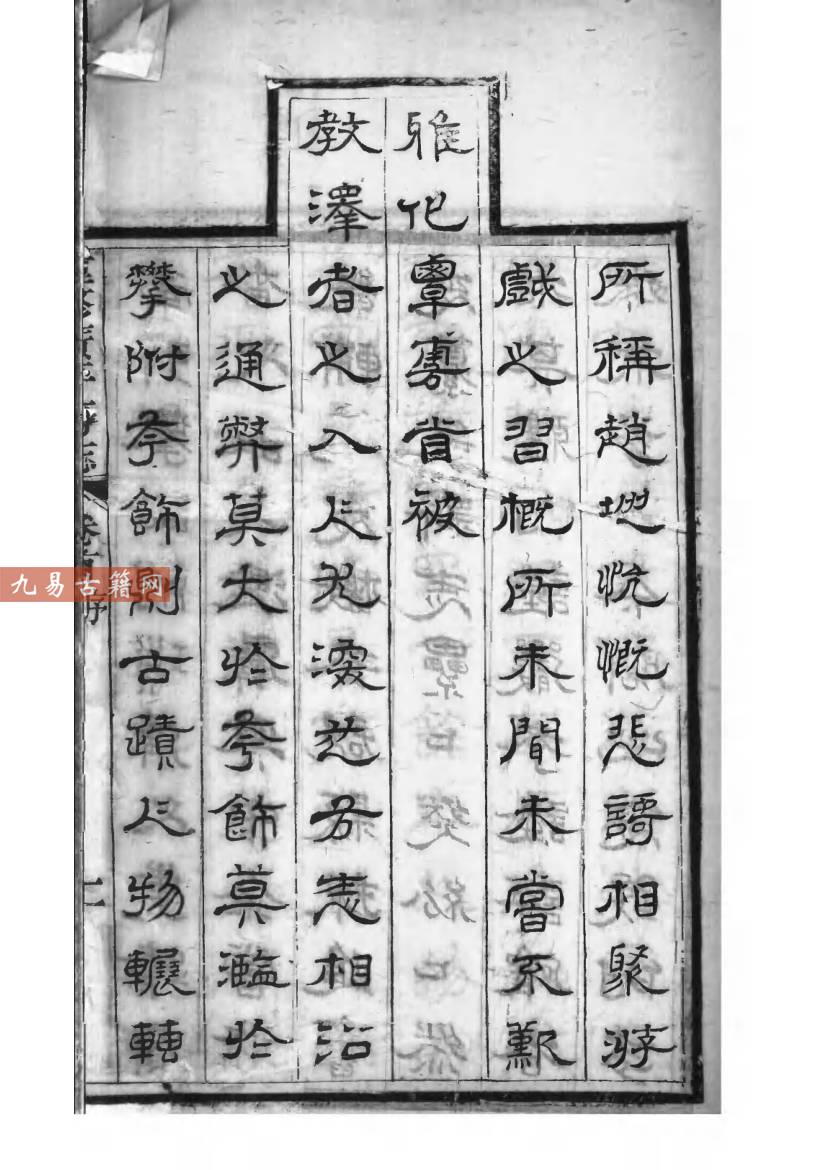 所稱趙地忼慨悲謌相聚游
戲之習概所未聞未嘗不歎
雅化覃被
教澤者之入人尤深也方志相沿
之通弊莫大於夸飾莫濫於
攀附夸飾則古蹟人物輾轉
卷首 序
二
九易古籍网